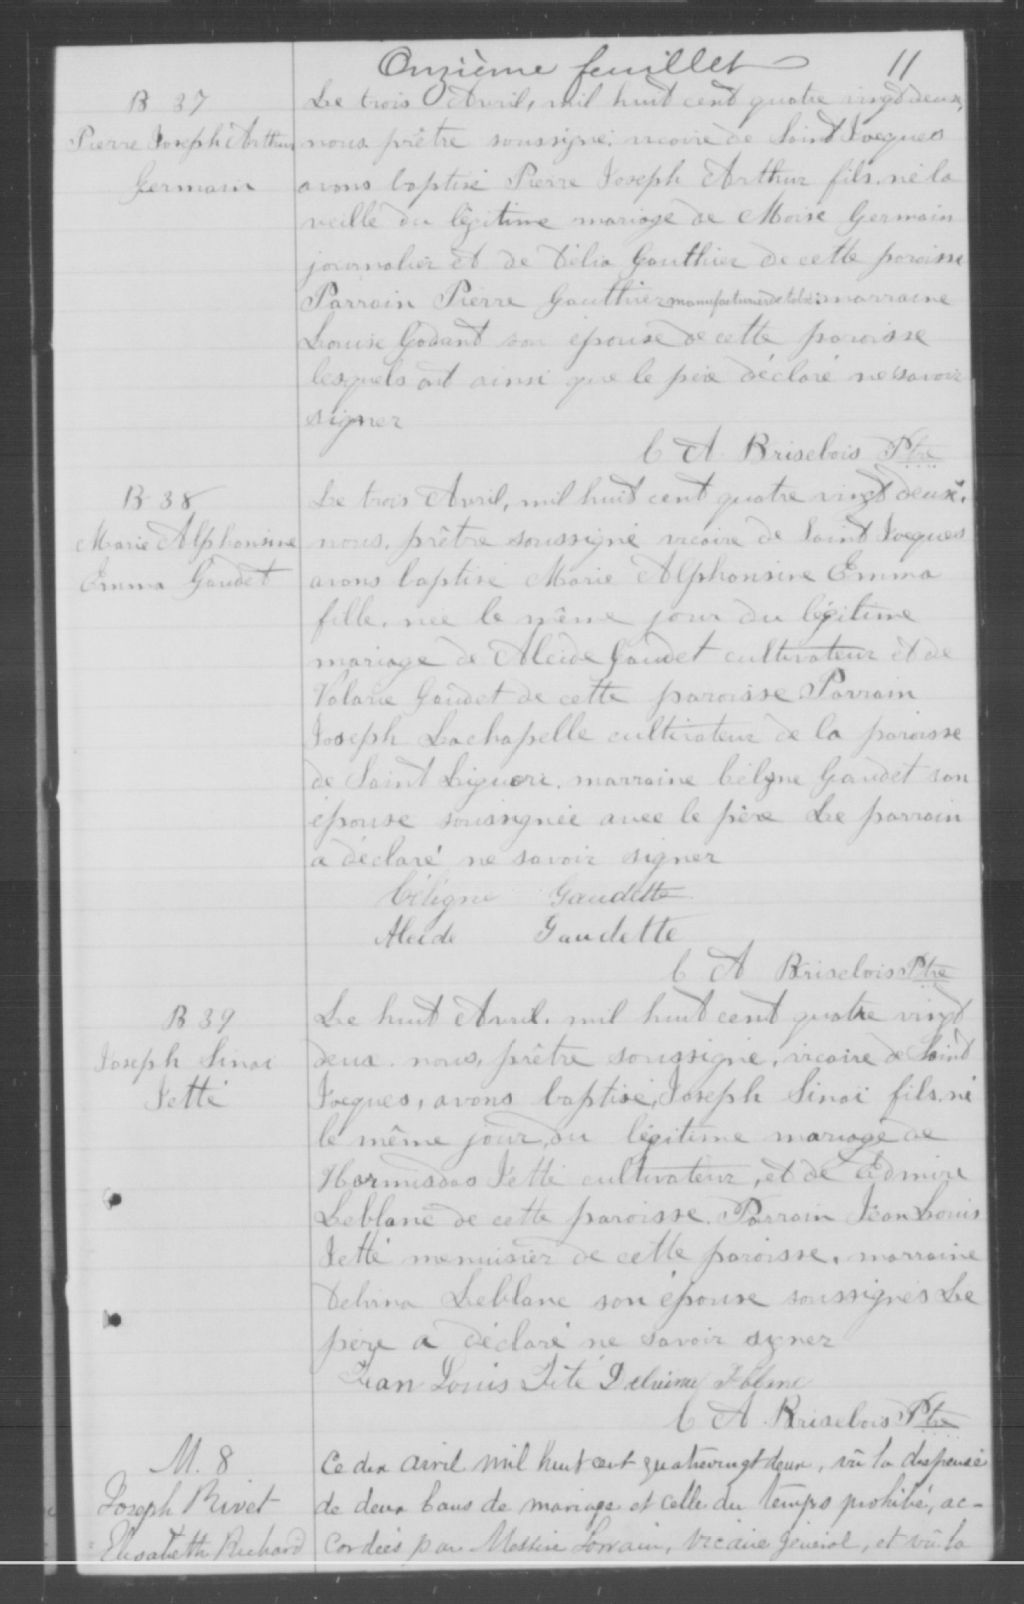 Onzième feuillet 11
B 37
Pierre Joseph Arthur
Germain
Le trois Avril, mil huit cent quatre vingt deux,
nous prêtre soussigné, vicaire de Saint Jacques
avons baptisé Pierre Joseph Arthur fils, né la
veille du légitime mariage de Moise Germain
journalier et de Délia Gauthier de cette paroisse
Parrain Pierre Gauthier manufacturier de tabac marraine
Louise Godant son épouse de cette paroisse
lesquels ont ainsi que le père déclaré ne savoir
signer
C A Brisebois Ptre
B 38
Marie Alphonsine
Emma Gaudet
Le trois Avril, mil huit cent quatre vingt deux,
nous, prêtre soussigné vicaire de Saint Jacques
avons baptisé Marie Alphonsine Emma
fille, née le même jour du légitime
mariage de Alcide Gaudet cultivateur et de
Valarie Gaudet de cette paroisse Parrain
Joseph Lachapelle cultivateur de la paroisse
de Saint Liguori, marraine Célyne Gaudet son
épouse soussignée avec le père Le parrain
a déclaré ne savoir signer
Céligne Gaudette
Alcide Gaudette
C A Brisebois Ptre
B 39
Joseph Sinai
Jetté
Le huit Avril, mil huit cent quatre vingt
deux, nous, prêtre soussigné, vicaire de Saint
Jacques, avons baptisé, Joseph Sinaï fils, né
le même jour, du légitime mariage de
Hormisdas Jetté cultivateur, et de Edmire
Leblanc de cette paroisse. Parrain Jean Louis
Jetté menuisier de cette paroisse, marraine
Delvina Leblanc son épouse soussignés Le
père a déclaré ne savoir signer
Jean Louis Jété Delvina
C A Brisebois Ptre
M. 8
Joseph Rivet
Elisabeth Richard
Ce dix avril mil huit cent quatrevingt deux, vû la dispense
de deux bans de mariage et celle du temps prohibé, ac-
cordées par Messire Lorrain, Vicaire Général, et vû la